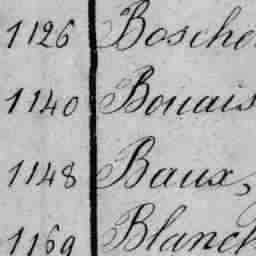 1126 Bosche
1140 Bouais
1148 Baux,
1169 Blanch